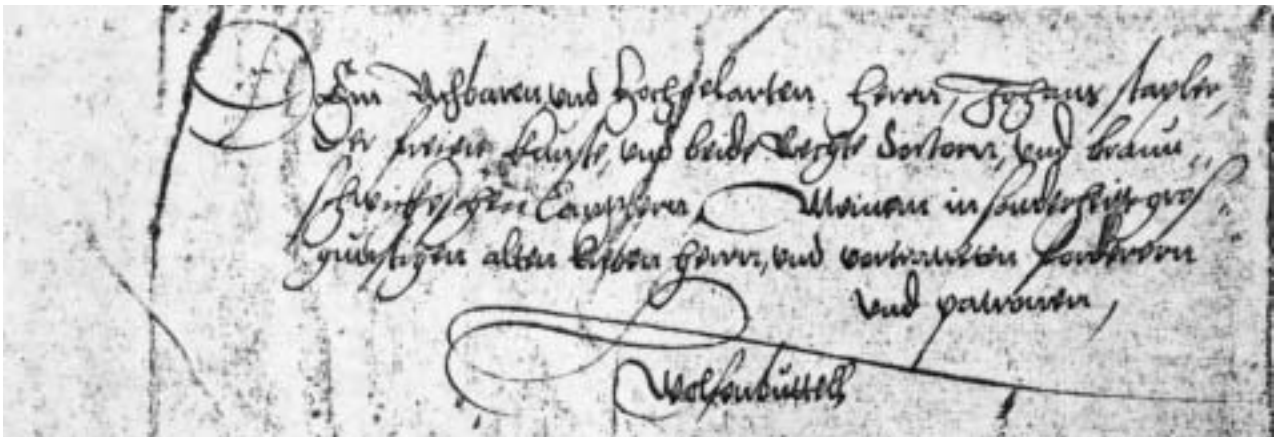 Dem Achbaren und Hochgelarten Herrn, Johans Stapler,
der freien Kunste, und beide Rechte Doctorn, und Braun„
schwickischen Cantzlern, Meinem in sonderheitt gros„
gunstigen alten lieben Herrn, und vertraueten forderern
und patronen,
Wolfenbuttell